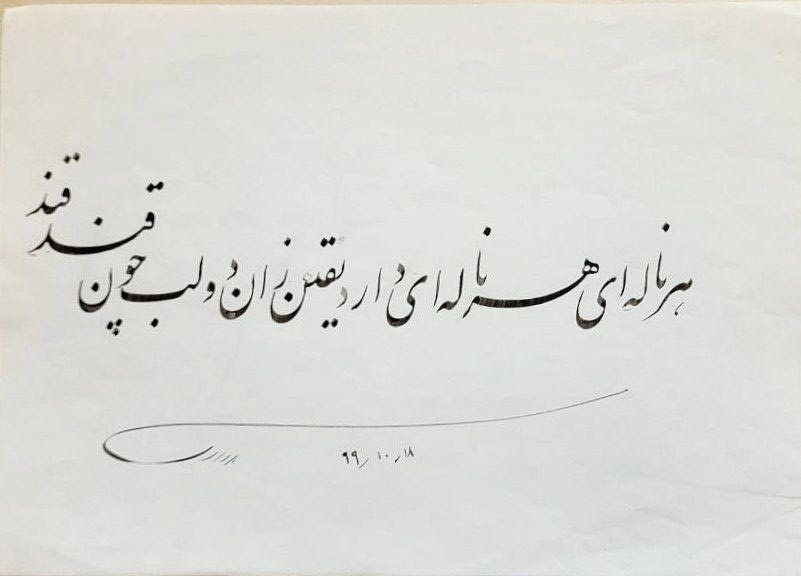 هر ناله ای هر ناله ای دارد یقین زان دو لب چون قند قند
۹۹/۱۰/۱۸